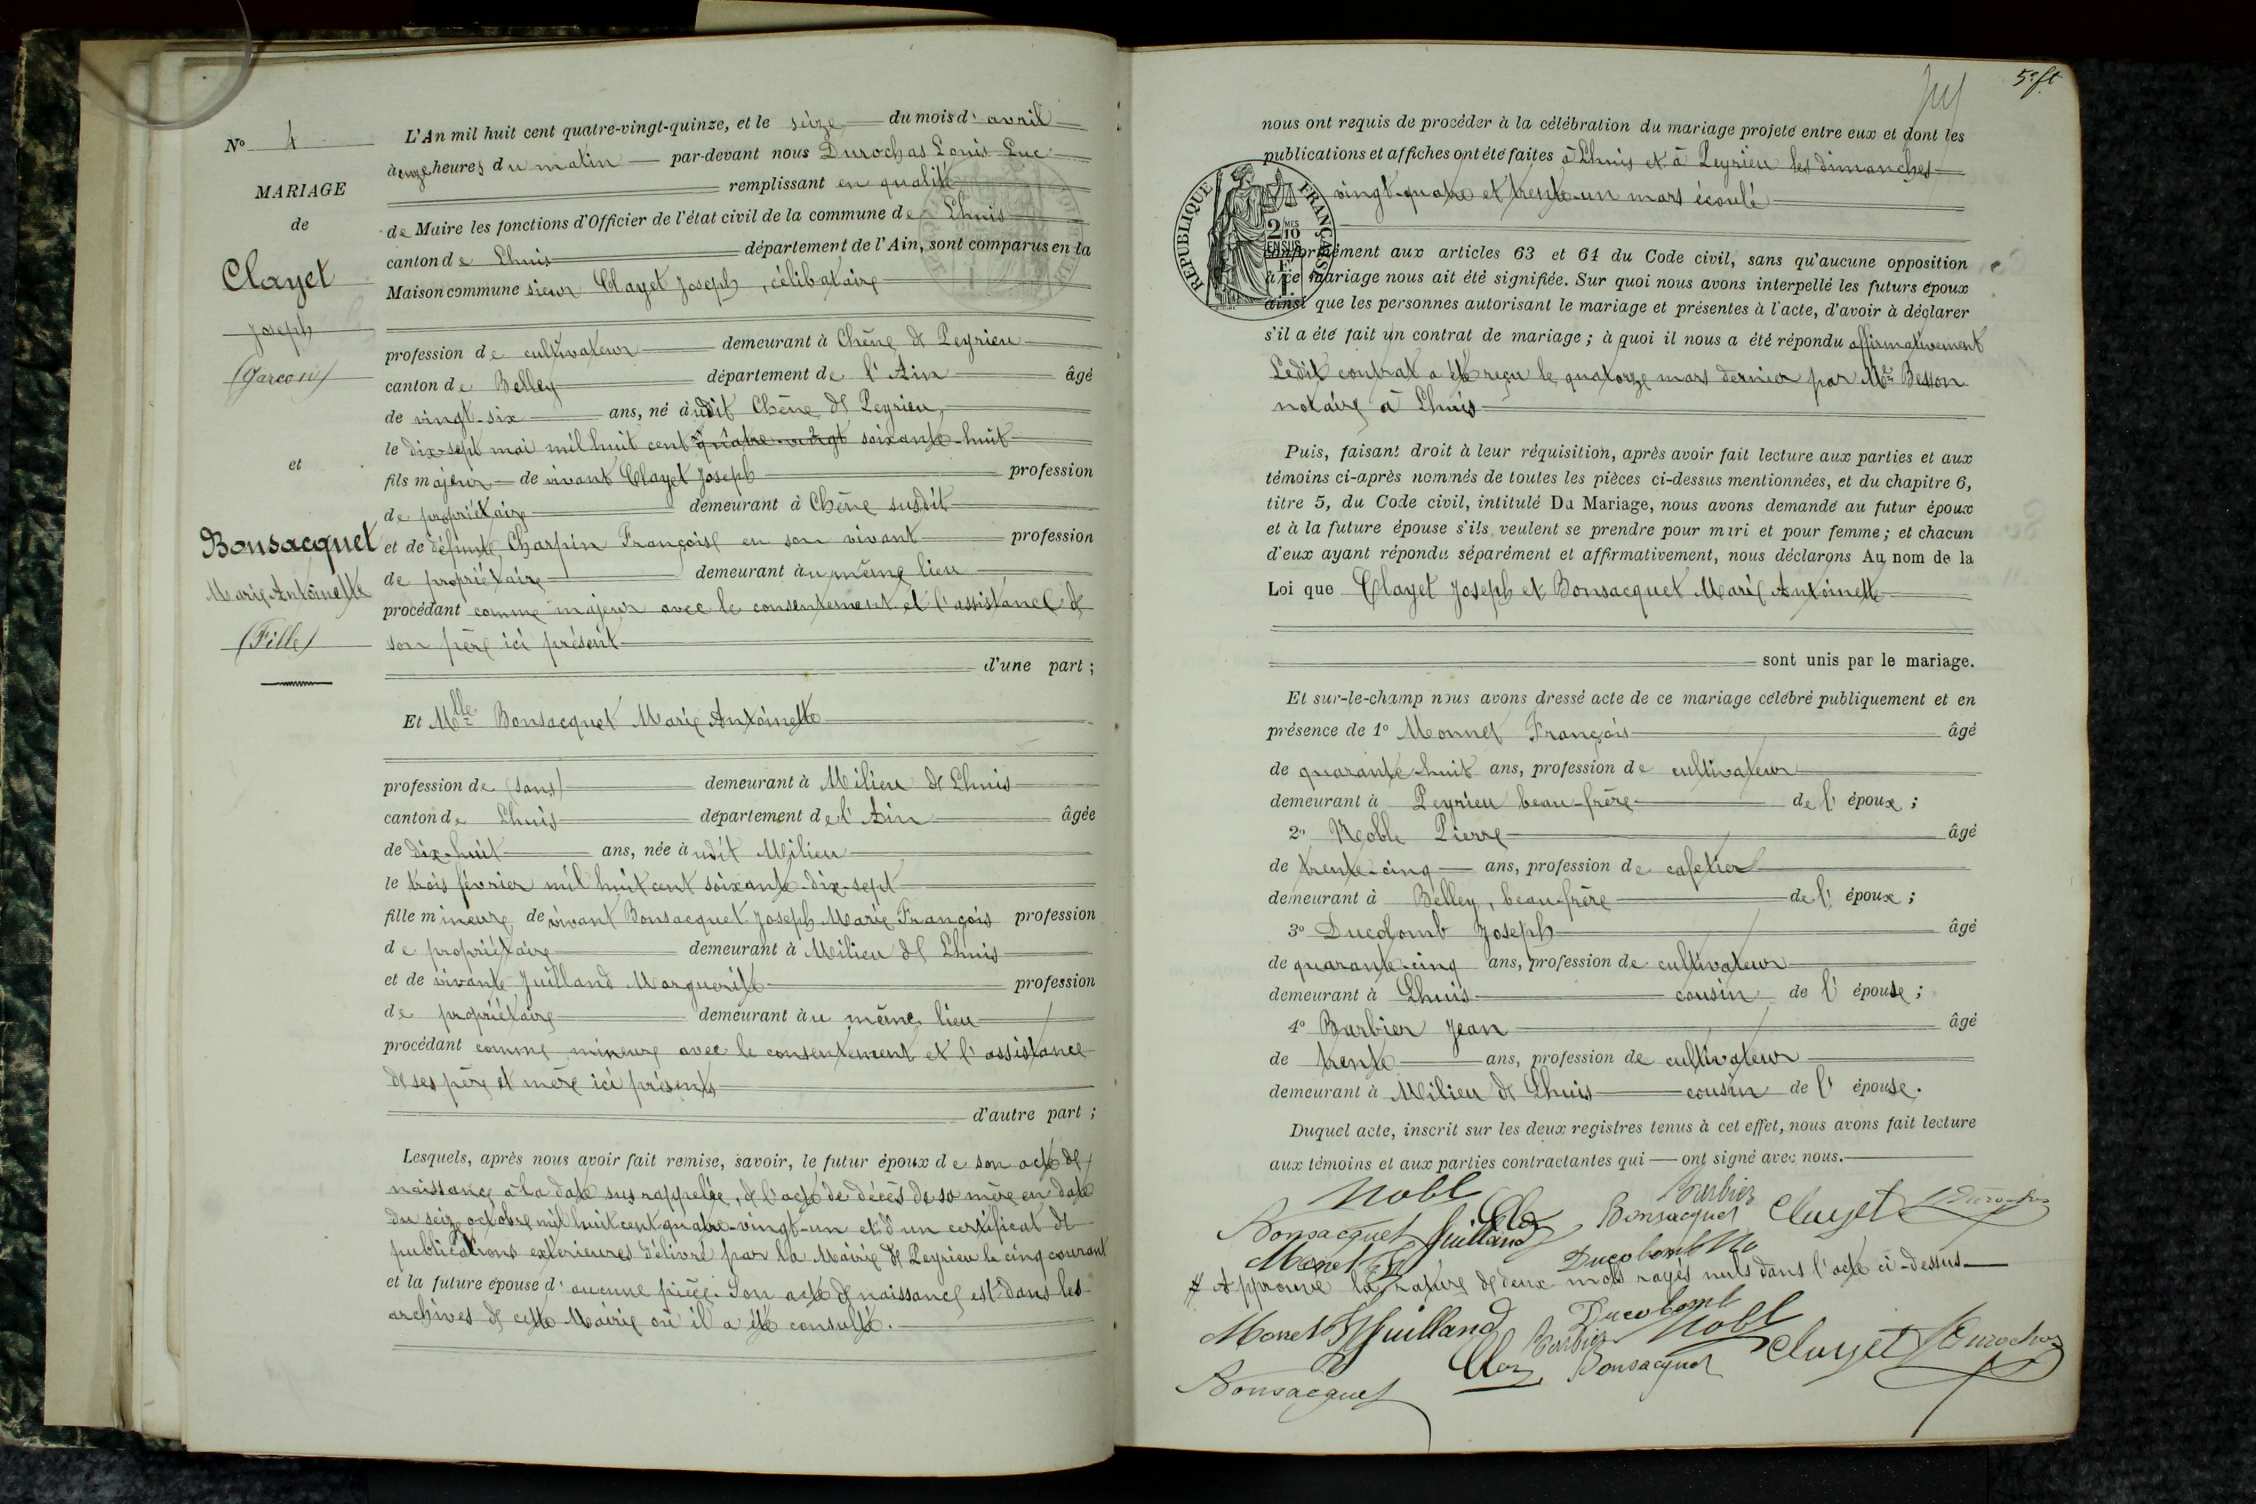 N° 4
MARIAGE
de
Clayet
Joseph
(Garçon)
et
Bonsacquet
Marie Antoinette
(Fille)
L'An mil huit cent quatre-vingt-quinze, et le seize du mois d'avril
à onze heures du matin par-devant nous Durochas Louis Luc
remplissant en qualité
de Maire les fonctions d'Officier de l'état civil de la commune de Lhuis
canton de Lhuis département de l'Ain, sont comparus en la
Maison commune sieur Clayet Joseph, célibataire
profession de cultivateur demeurant à Chêne de Peyrieu
canton de Belley département de l'Ain âgé
de vingt-six ans, né àudit Chêne de Peyrieu,
le dix-sept mai mil huit cent quatre-vingt soixante-huit
fils majeur de vivant Clayet Joseph profession
de propriétaire demeurant à Chêne susdit
et de défunte Charpin Françoise en son vivant profession
de propriétaire demeurant àu même lieu
procédant comme majeur avec le consentement et l'assistance de
son père ici présent
d'une part ;
Et Mlle Bonsacquet Marie Antoinette
profession de (sans) demeurant à Milieu de Lhuis
canton de Lhuis département de l'Ain âgée
de dix-huit ans, née àudit Milieu
le trois février mil huit cent soixante-dix-sept
fille mineure de vivant Bonsacquet Joseph Marie François profession
de propriétaire demeurant à Milieu de Lhuis
et de vivante Juilland Marguerite profession
de propriétaire demeurant àu même lieu
procédant comme mineure avec le consentement et l'assistance
de ses père et mère ici présents
d'autre part ;
Lesquels, après nous avoir fait remise, savoir, le futur époux de son acte de
naissance à la date sus rappelée, de l'acte de décès de sa mère en date
du seize octobre mil huit cent quatre-vingt-un et d'un certificat de
publications extérieures délivré par la Mairie de Peyrieu le cinq courant
et la future épouse d'aucune pièce. Son acte de naissance est dans les
archives de cette Mairie où il a été consulté.
5e ft
nous ont requis de procéder à la célébration du mariage projeté entre eux et dont les
publications et affiches ont été faites à Lhuis et à Peyrieu les dimanches
vingt-quatre et trente-un mars écoulé
REPUBLIQUE FRANÇAISE
2/10 MES
EN SUS
conformément aux articles 63 et 64 du Code civil, sans qu'aucune opposition
à ce mariage nous ait été signifiée. Sur quoi nous avons interpellé les futurs époux
ainsi que les personnes autorisant le mariage et présentes à l'acte, d'avoir à déclarer
s'il a été fait un contrat de mariage ; à quoi il nous a été répondu affirmativement
Ledit contrat a été reçu le quatorze mars dernier par Me Besson
notaire à Lhuis
Puis, faisant droit à leur réquisition, après avoir fait lecture aux parties et aux
témoins ci-après nommés de toutes les pièces ci-dessus mentionnées, et du chapitre 6,
titre 5, du Code civil, intitulé Du Mariage, nous avons demandé au futur époux
et à la future épouse s'ils veulent se prendre pour mari et pour femme ; et chacun
d'eux ayant répondu séparément et affirmativement, nous déclarons Au nom de la
Loi que Clayet Joseph et Bonsacquet Marie Antoinette
sont unis par le mariage.
Et sur-le-champ nous avons dressé acte de ce mariage célébré publiquement et en
présence de 1° Monnet François âgé
de quarante-huit ans, profession de cultivateur
demeurant à Peyrieu beau-frère de l'époux ;
2° Noble Pierre âgé
de trente-cinq ans, profession de cafetier
demeurant à Belley, beau-frère de l'époux ;
3° Ducolomb Joseph âgé
de quarante-cinq ans, profession de cultivateur
demeurant à Lhuis cousin de l'épouse ;
4° Barbier Jean âgé
de trente ans, profession de cultivateur
demeurant à Milieu de Lhuis cousin de l'épouse.
Duquel acte, inscrit sur les deux registres tenus à cet effet, nous avons fait lecture
aux témoins et aux parties contractantes qui ont signé avec nous.
Nobl Barbier
Bonsacquet Juilland Bonsacquet Clayet
Monet Ducolomb
Approuvé la rature de deux mots rayés nuls dans l'acte ci-dessus
Monet Juilland Barbier Ducolomb Nobl
Bonsacquet Bonsacquet Clayet Durochas